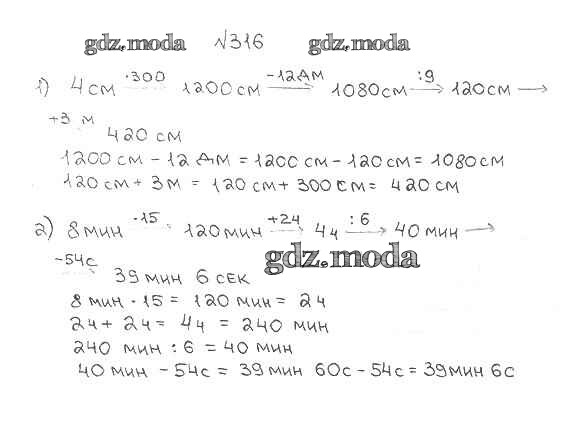 gdz.moda №316 gdz.moda
1) 4 см ·300 1200 см -12 дм 1080 см :9 120 см
+3 м 420 см
1200 см - 12 дм = 1200 см - 120 см = 1080 см
120 см + 3 м = 120 см + 300 см = 420 см
2) 8 мин ·15 120 мин +2ч 4ч :6 40 мин
gdz.moda
-54с 39 мин 6 сек
8 мин · 15 = 120 мин = 2ч
2ч + 2ч = 4ч = 240 мин
240 мин : 6 = 40 мин
40 мин - 54с = 39 мин 60с - 54с = 39 мин 6с